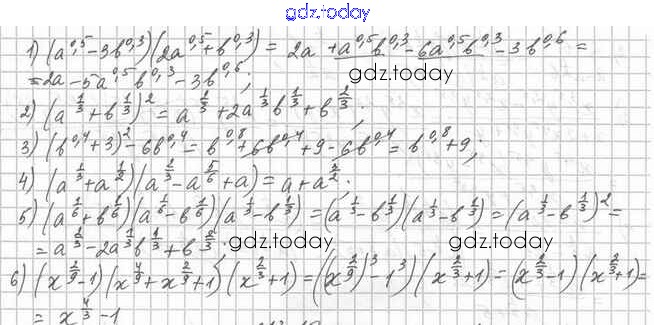 gdz.today
1) (a^{0,5} - 3b^{0,3})(2a^{0,5} + b^{0,3}) = 2a + a^{0,5}b^{0,3} - 6a^{0,5}b^{0,3} - 3b^{0,6} =
gdz.today
= 2a - 5a^{0,5}b^{0,3} - 3b^{0,6};
gdz.today
2) (a^{1/3} + b^{1/3})^2 = a^{2/3} + 2a^{1/3}b^{1/3} + b^{2/3};
3) (b^{0,4} + 3)^2 - 6b^{0,4} = b^{0,8} + 6b^{0,4} + 9 - 6b^{0,4} = b^{0,8} + 9;
gdz.today
4) (a^{1/3} + a^{1/2})(a^{2/3} - a^{5/6} + a) = a + a^{3/2};
5) (a^{1/6} + b^{1/6})(a^{1/6} - b^{1/6})(a^{1/3} - b^{1/3}) = (a^{1/3} - b^{1/3})(a^{1/3} - b^{1/3}) = (a^{1/3} - b^{1/3})^2 =
= a^{2/3} - 2a^{1/3}b^{1/3} + b^{2/3};
gdz.today gdz.today
6) (x^{2/9} - 1)(x^{4/9} + x^{2/9} + 1)(x^{2/3} + 1) = ((x^{2/9})^3 - 1^3)(x^{2/3} + 1) = (x^{2/3} - 1)(x^{2/3} + 1) =
= x^{4/3} - 1